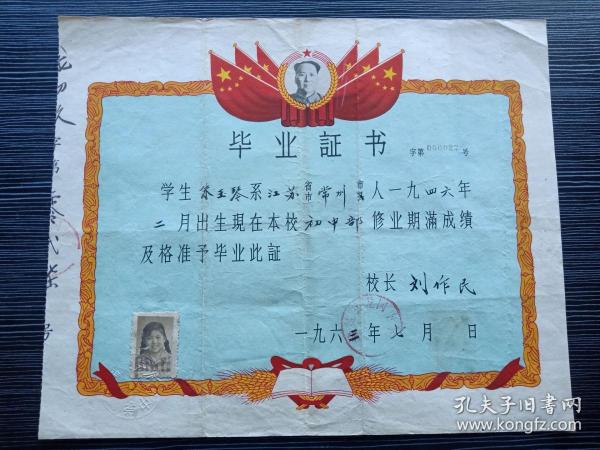 毕业証书
字第000027号
学生 玉琴系江苏省市常州市县人一九四六年
二月出生現在本校初中部修业期滿成績
及格准予毕业此証
校长 刘作民
一九六三年七月 日
孔夫子旧书网
www.kongfz.com